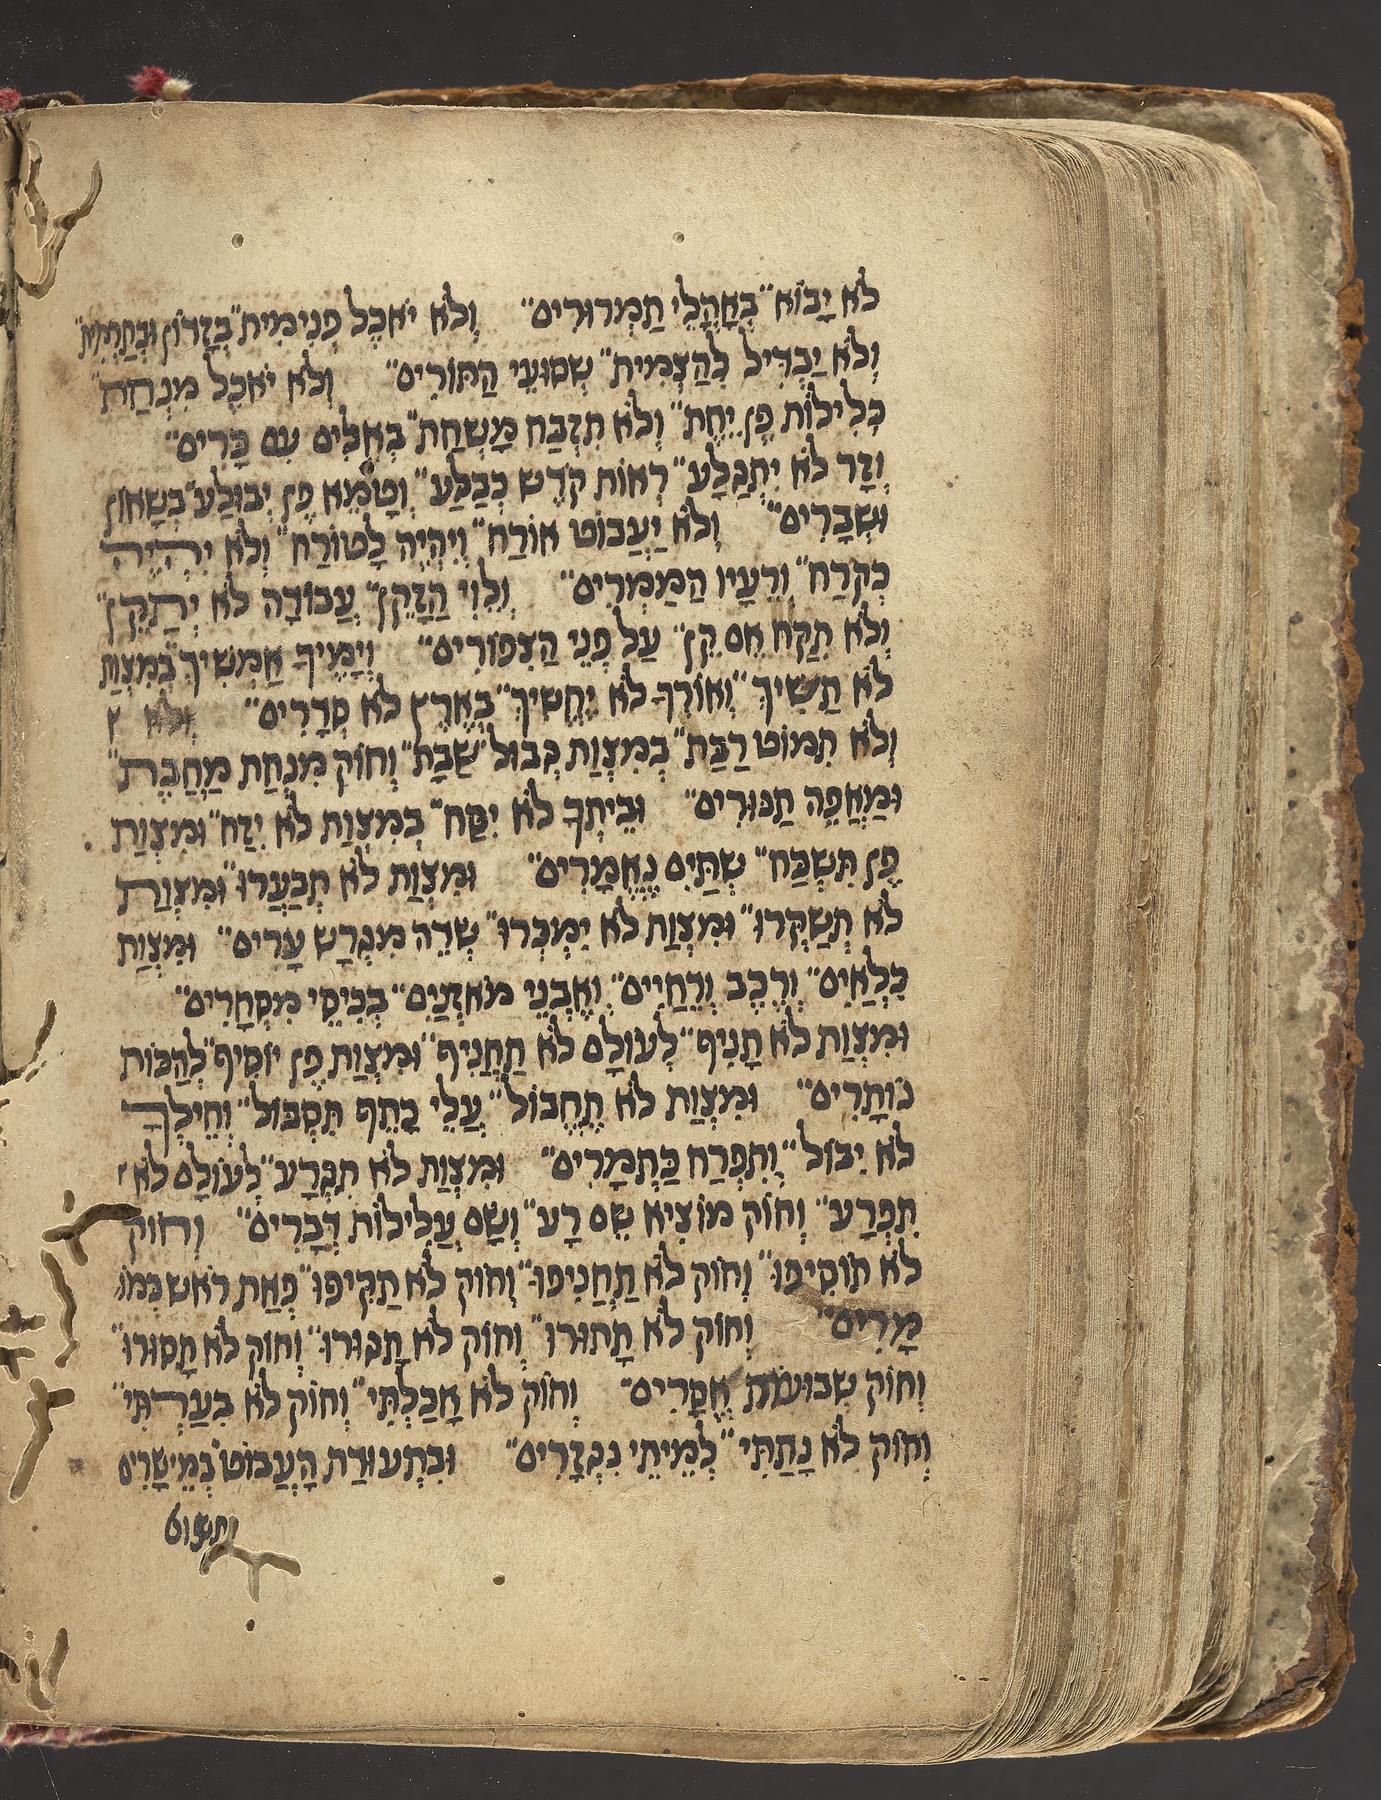 לֹא יָבוֹא״ בְּאָהֳלֵי תַמְרוּרִים״ וְלֹא יֹאכַל פְּנִימִית״ בְּגָרוֹן
וְלֹא יַבְדִּיל לְהַצְמִית״ שְׁסוּעֵי הַתּוֹרִים״ וְלֹא יֹאכַל מִנְחַת״
כְּלִילוֹת פֶּן יֵחַת״ וְלֹא תִזְבַּח מָשְׁחַת״ בְּאֵלִים עִם כָּרִים״
וְזָר לֹא יִתְגַּלַּע״ רְאוֹת קֹדֶשׁ כְּבַלַּע״ וְטָמֵא פֶּן יְבוּלַּע״ בְּשָׁאוֹן
וּשְׁבָרִים״ וְלֹא יַעֲבוֹט אוֹרַח״ וְיִהְיֶה לָטוֹרַח״ וְלֹא יִהְיֶה
כְּקֹרַח״ וְרֵעָיו הַמַּמְרִים״ וְלֵוִי הַזָּקֵן״ עֲבוֹדָה לֹא יְתַקֵּן״
וְלֹא תִקַּח אֵם קֵן״ עַל פְּנֵי הַצִּפּוֹרִים״ וְיָמֶיךָ אַמְשִׁיךְ״ בְּמִצְוַת
לֹא תַשִּׁיךְ״ וְאוֹרְךָ לֹא יַחֲשִׁיךְ״ בְּאֶרֶץ לֹא סְדָרִים״ וְלֹא
וְלֹא תִמּוֹט רַבַּת״ בְּמִצְוַת גְּבוּל שַׁבָּת״ וְחוֹק מִנְחַת מַחֲבַת״
וּמַאֲפֵה תַנּוּרִים״ וּבֵיתְךָ לֹא יִסַּח״ בְּמִצְוַת לֹא יִזַּח״ וּמִצְוַת
פֶּן תִּשְׁכַּח״ שְׁתַּיִם נֶאֱמָרִים״ וּמִצְוַת לֹא תְבַעֲרוּ״ וּמִצְוַת
לֹא תְשַׁקְּרוּ״ וּמִצְוַת לֹא יִמְכְּרוּ״ שְׂדֵה מִגְרַשׁ עָרִים״ וּמִצְוַת
כִּלְאַיִם״ וְרֶכֶב וְרֵחַיִים״ וְאַבְנֵי מֹאזְנַיִם״ בְּכִיסֵי מִסְחָרִים״
וּמִצְוַת לֹא תָנִיף״ לְעוֹלָם לֹא תַחֲנִיף״ וּמִצְוַת פֶּן יוֹסִיף״ לְהַכּוֹת
נוֹתָרִים״ וּמִצְוַת לֹא תַחֲבוֹל״ עֲלֵי כָתֵף תִּסְבּוֹל״ וְחֵילְךָ
לֹא יִבּוֹל״ וְתִפְרַח כַּתְּמָרִים״ וּמִצְוַת לֹא תִגְרַע״ לְעוֹלָם לֹא
תִפְרַע״ וְחוֹק מוֹצִיא שֵׁם רָע״ וְשָׂם עֲלִילוֹת דְּבָרִים״ וְחוֹק
לֹא תוֹסִיפוּ״ וְחוֹק לֹא תַחֲנִיפוּ״ וְחוֹק לֹא תַקִּיפוּ״ פְּאַת רֹאשׁ כְּמוֹ
מָרִים״ וְחוֹק לֹא תָתוּרוּ״ וְחוֹק לֹא תָגוּרוּ״ וְחוֹק לֹא תָסוּרוּ״
וְחוֹק שְׁבוּעוֹת אֱסָרִים״ וְחוֹק לֹא אָכַלְתִּי״ וְחוֹק לֹא בִעַרְתִּי״
וְחוֹק לֹא נָתַתִּי״ לְמֵיתֵי נִגְזָרִים״ וּבִתְעוּדַת הָעֲבוֹט״ בְּמֵישָׁרִים